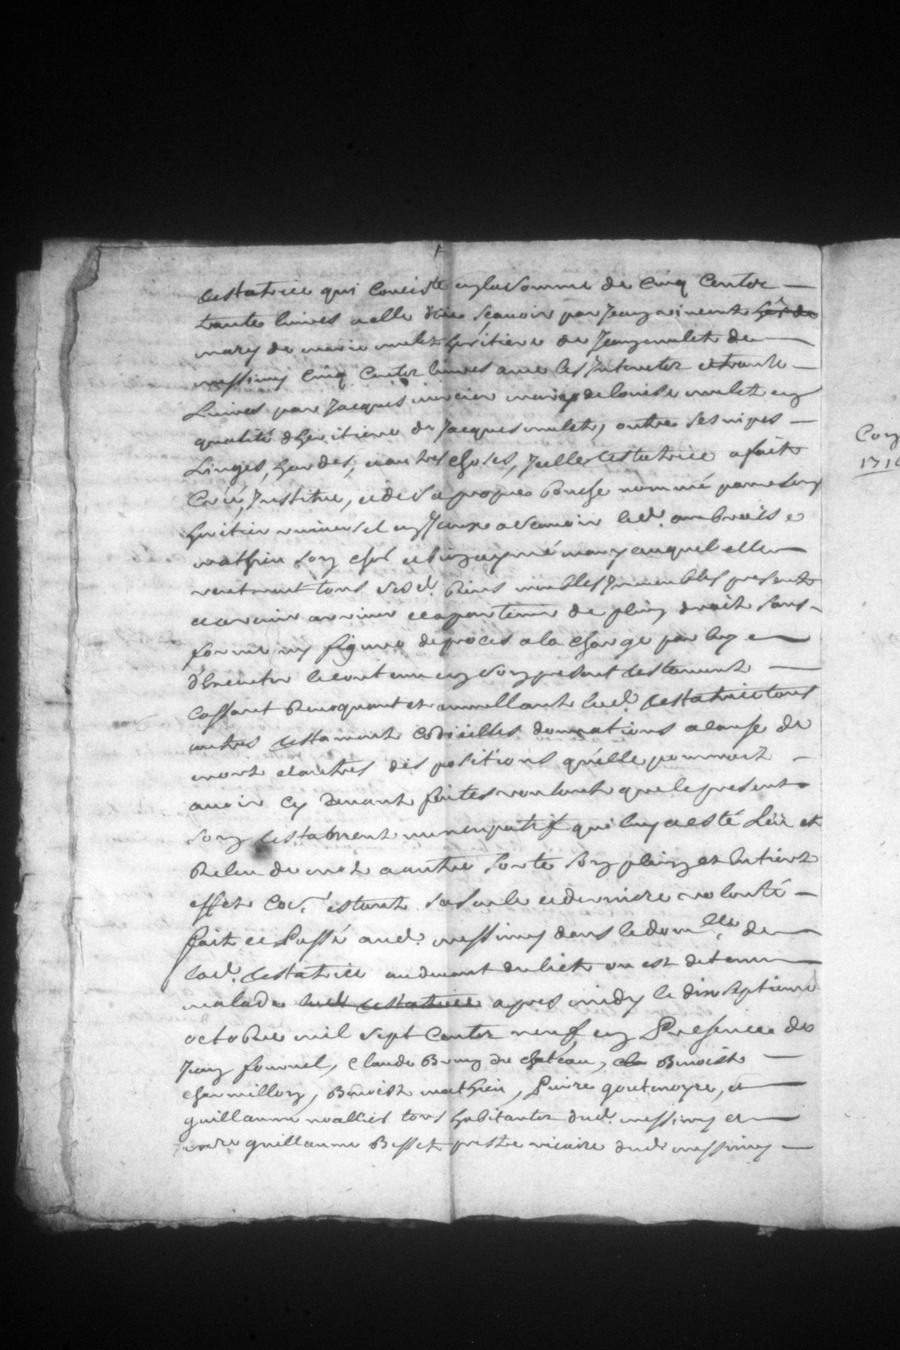 testatrice qui Consiste en la somme de Cinq Centz
trante livres a elle düe scavoir par Jean
mary de marie mulet héritiere de Jean mulet de
messimy Cinq Centz livres avec les Interetz et trante
Livres par Jacques mercier mary de louise mulet en
qualité d'heritiere de Jacques mulet, outre ses nipes
Linges, hardes, et autres choses, Icelle testatrice a fait
Créé, Institue, et de sa propre bouche nommé pour son
heritier universel a scavoir led. ambroise
mathieu son cher et bien aymé mary auquel elle
veut que tous sesd. biens meubles Immeubles presents
et avenir arrive et apartienne de plein droit sans
forme ny figure de proces a la charge par luy
d'Executer le contenu en son present testament
Cassant Revoquant et annullant lad. testatrice tous
autres testament Codicilles donnations a cause de
mort et autres dispositions qu'elle pourroit
avoir cy devant faites voulant que le present
son testament nuncupatif qui luy a esté Leu et
Releu de mot a autre sorte son plein et Entier
effet Co estant sa seule et derniere volonté
fait et Passé aud. messimy dans le dom.lle de
lad. testatrice au devant du liet ou est detenue
malade lad. testatrice apres midy le dix septieme
octobre mil sept Centz neuf en Presence de
Jean fournel, Claude Bruny du chateau, Benoist
charmillon, Benoist mathieu, Pierre goutenoyre, et
guillaume noalliet tous habitantz dud. messimy et
mre guillaume Bisset prestre vicaire dud messimy
Con
171